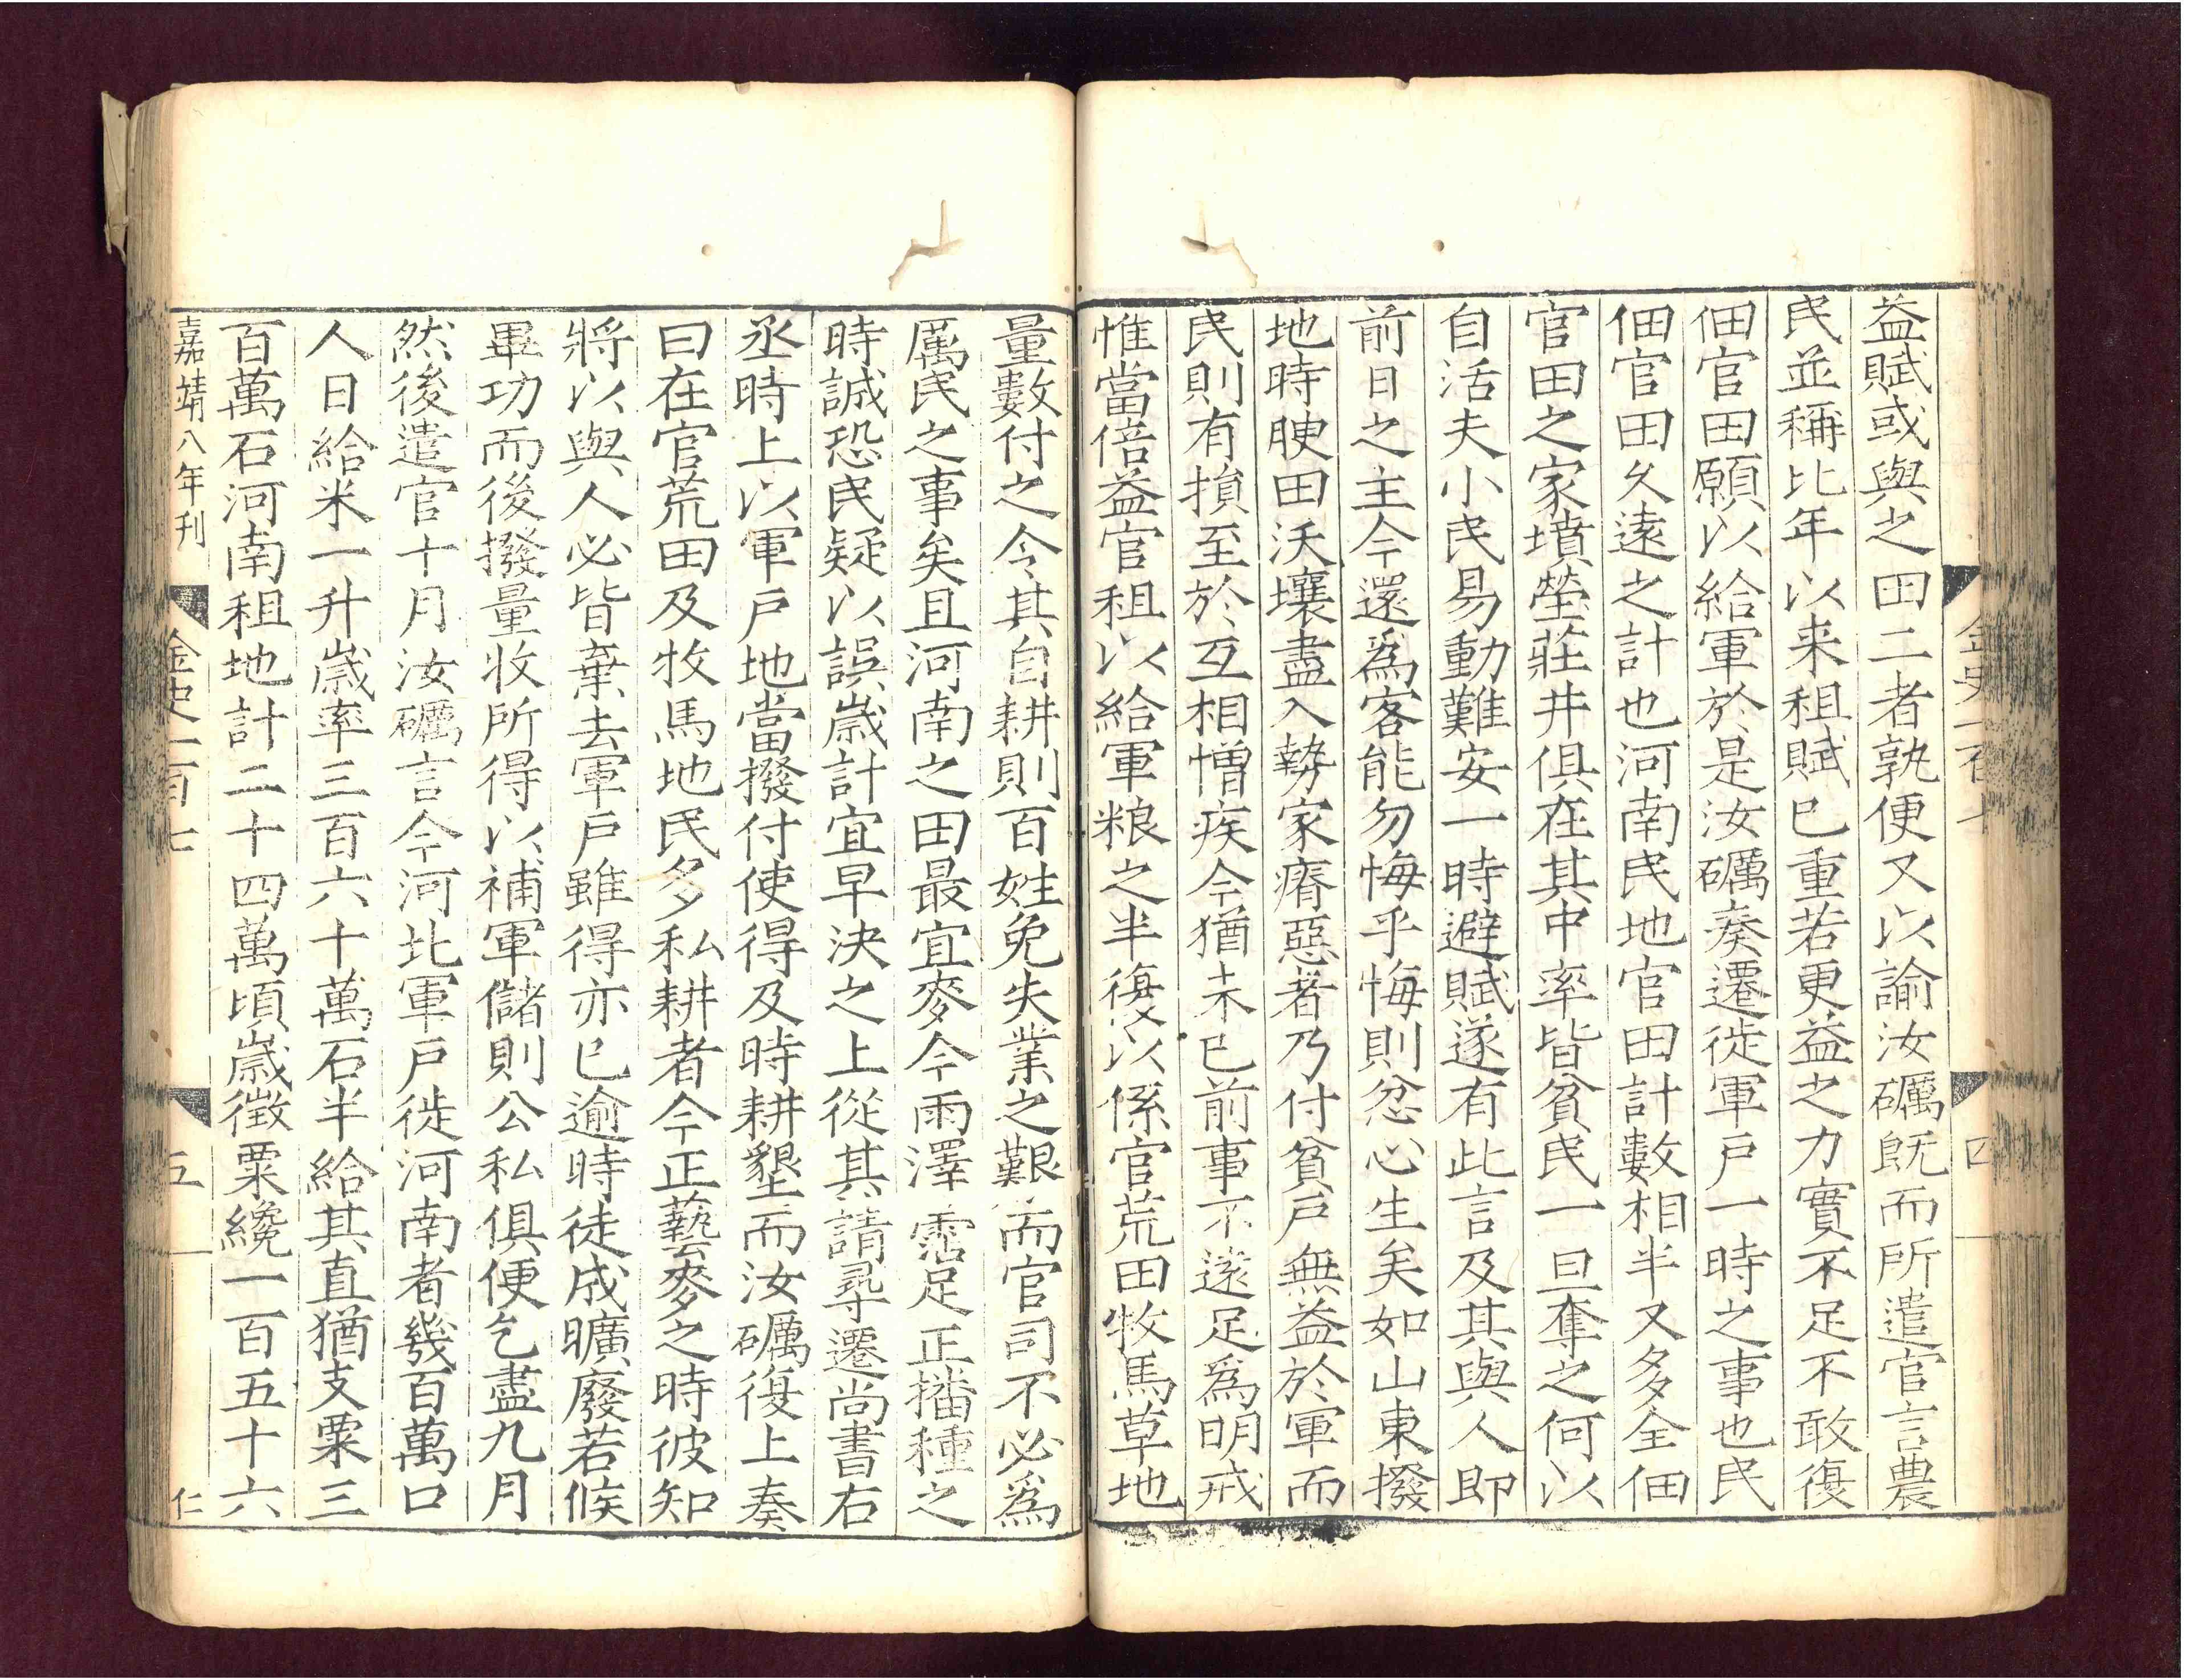 益賦或與之田二者孰便又以諭汝礪旣而所遣官言農
民並稱比年以来租賦已重若更益之力實不足不敢復
佃官田願以給軍於是汝礪奏遷徙軍戶一時之事也民
佃官田久遠之計也河南民地官田計數相半又多全佃
官田之家墳塋莊井俱在其中率皆貧民一旦奪之何以
自活夫小民易動難安一時避賦遂有此言及其與人即
前日之主今還爲客能勿悔乎悔則忿心生矣如山東撥
地時腴田沃壤盡入勢家瘠惡者乃付貧戶無益於軍而
民則有損至於互相憎疾今猶未已前事不遠足爲明戒
惟當倍益官租以給軍粮之半復以係官荒田牧馬草地
量數付之令其自耕則百姓免失業之艱而官司不必爲
厲民之事矣且河南之田最宜麥今雨澤霑足正播種之
時誠恐民疑以誤歲計宜早決之上從其請尋遷尚書右
丞時上以軍戶地當撥付使得及時耕墾而汝礪復上奏
曰在官荒田及牧馬地民多私耕者今正藝麥之時彼知
將以與人必皆棄去軍戶雖得亦已逾時徒成曠廢若候
畢功而後撥量收所得以補軍儲則公私俱便乞盡九月
然後遣官十月汝礪言今河北軍戶徙河南者幾百萬口
人日給米一升歲率三百六十萬石半給其直猶支粟三
百萬石河南租地計二十四萬頃歲徵粟纔一百五十六
嘉靖八年刊
金史一百七
五
仁
金史一百七
四